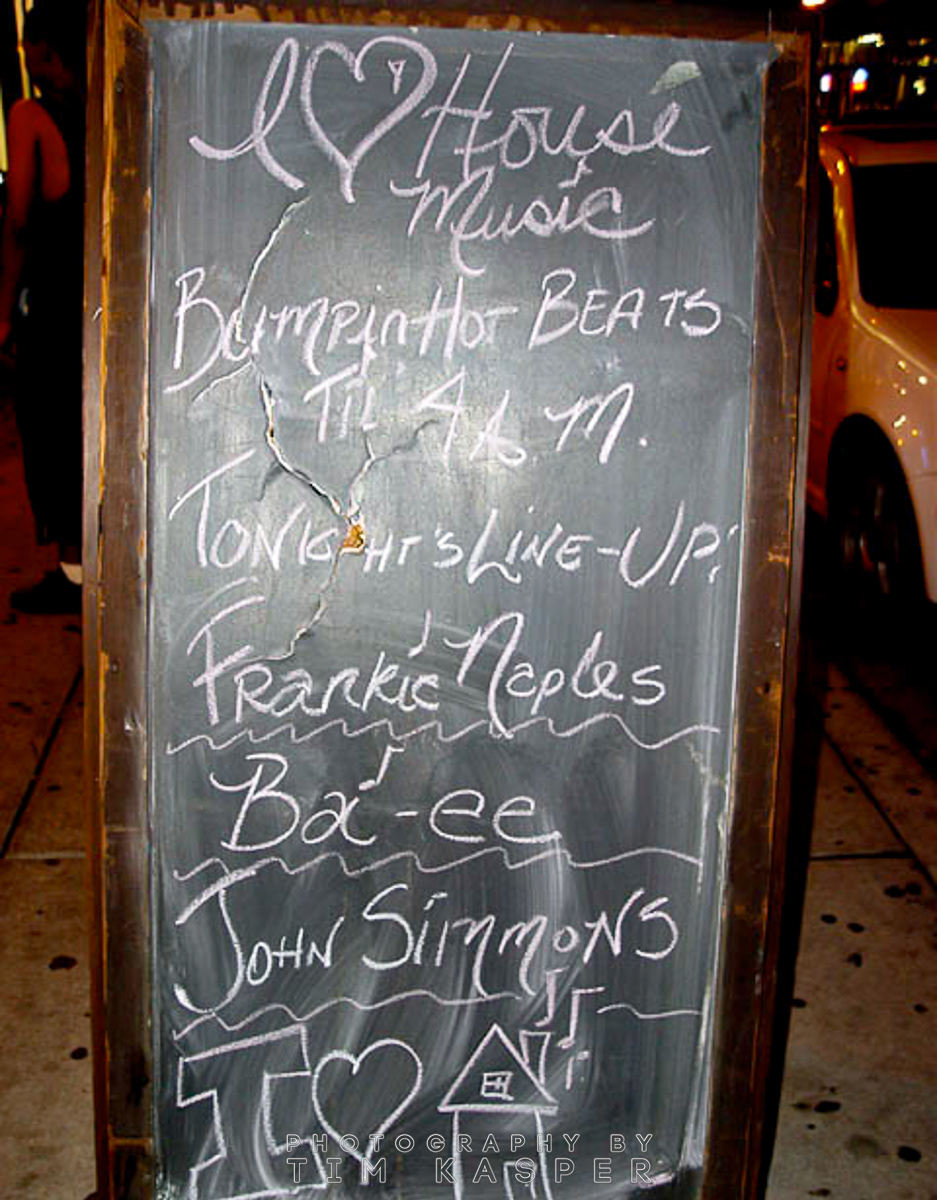 I ♡ House
Music
Bumpin Hot BEATS
Til 4 A.M.
TONIGHT'S LINE-UP:
Frankie Naples
Ba-ee
JOHN SimmoNS
I ♡
PHOTOGRAPHY BY
TIM KASPER